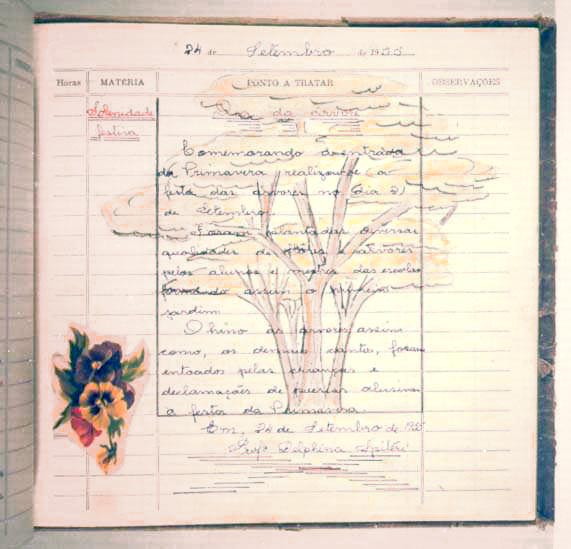 24 de Setembro de 1955
Horas MATÉRIA PONTO A TRATAR OBSERVAÇÕES
Solenidade
festiva
Dia da árvore
Comemorando a entrada
da Primavera realizou-se a
festa das árvores no dia 21
de Setembro.
Foram plantadas diversas
qualidades de flôres e árvores
pelos alunos e das escolas
formando assim o primeiro
jardim.
O hino às árvores assim
como, os demais cantos, foram
entoados pelas crianças e
declamações de poesias alusivas
a festa da Primavera
Em, 24 de Setembro de 1955
Profª Delphina